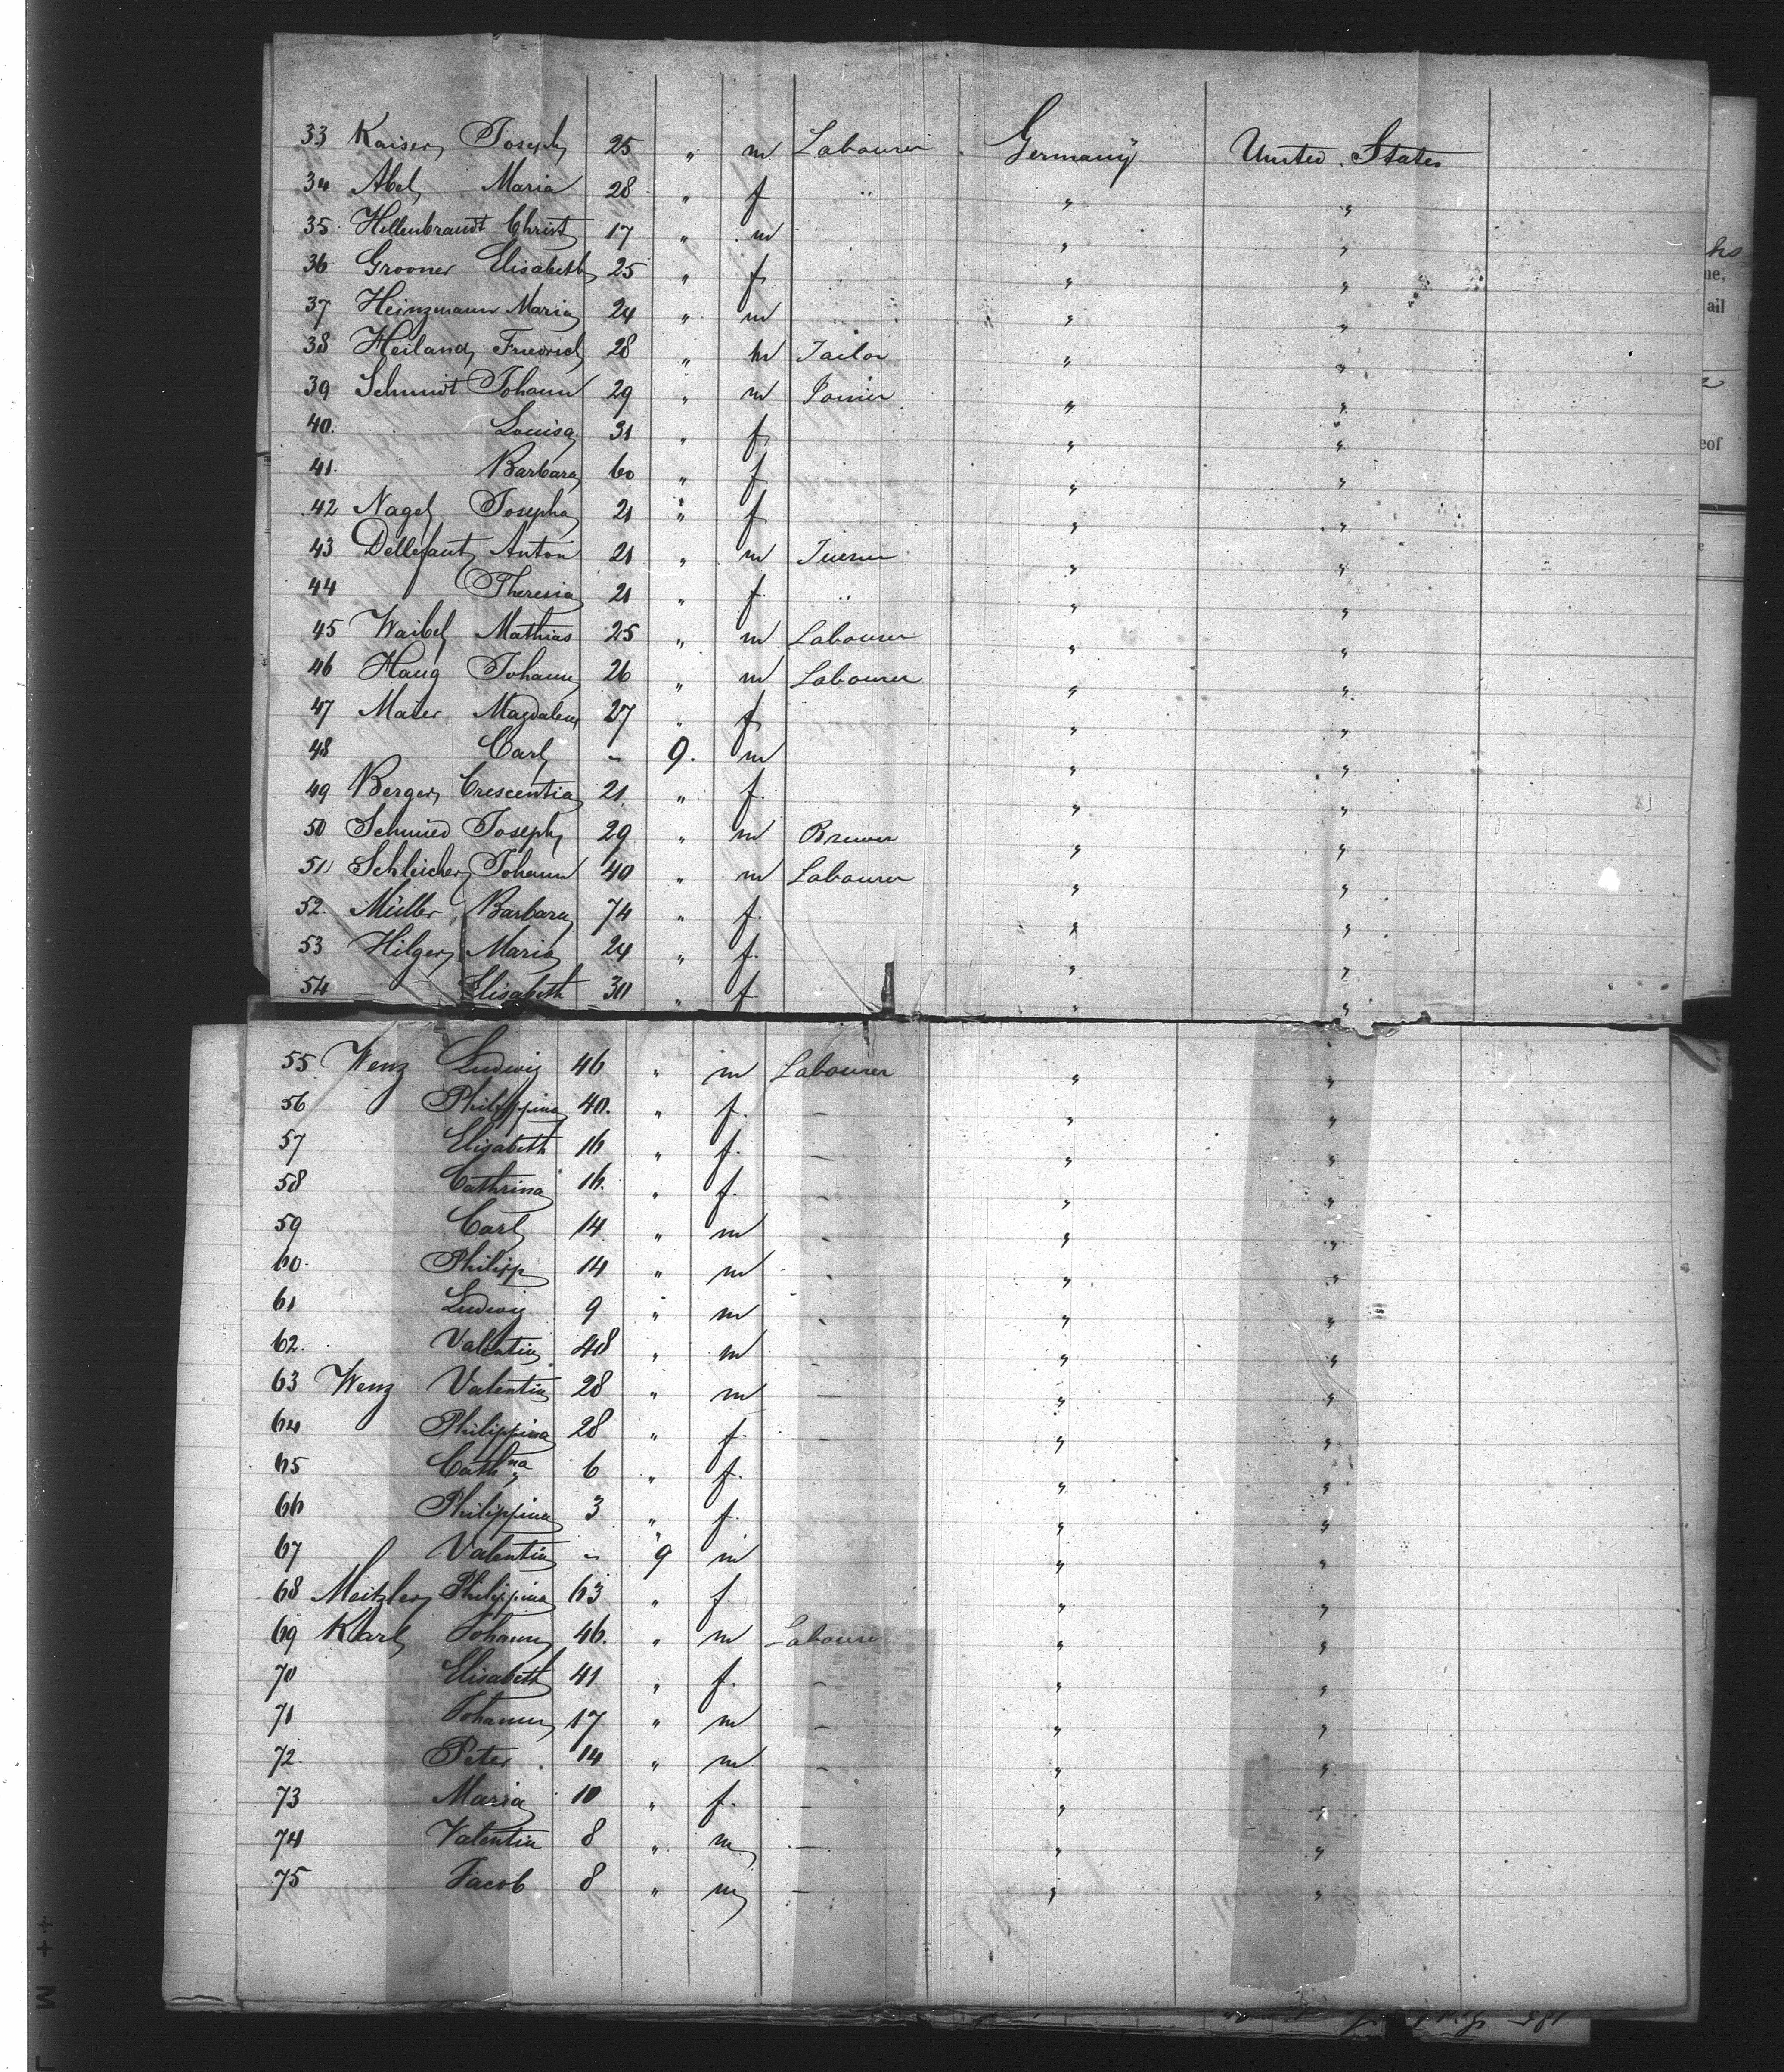 33 Kaiser, Joseph 25 " m Labourer Germany United States
34 Abel, Maria 28 " f " " "
35 Hillenbrandt Christ 17 " m " "
36 Grooner Elisabeth 25 " f " "
37 Heinzmann Maria 24 " m " "
38 Heiland, Friedrich 28 " m Tailor " "
39 Schmidt Johann 29 " m " "
40. Louisa 31 " f " "
41. Barbara 60 " f " "
42 Nagel Josepha 21 " f " "
43 Dellefant, Anton 21 " m " "
44 Theresia 21 " f " " "
45 Waibel Mathias 25 " m Labourer " "
46 Haug Johann 26 " m Labourer " "
47 Maier Magdalena 27 " f " "
48 Carl - 9. m " "
49 Berger, Crescentia 21 " f. " "
50 Schmied Joseph 29 " m Brewer " "
51 Schleicher, Johann 40 " m Labourer " "
52. Müller Barbara 74 " f. " "
53 Hilger, Maria 24 " f. " "
54 Elisabeth 30 " f " "
55 Wenz Ludwig 46 " m Labourer " "
56 Philippina 40. " f. - " "
57 Elisabeth 16 " f. - " "
58 Cathrina 16. " f. - " "
59 Carl 14 " m - " "
60. Philipp 14 " m - " "
61 Ludwig 9 " m - " "
62. Valentin 48 " m - " "
63 Wenz Valentin 28 " m - " "
64 Philippina 28 " f. - " "
65 Cathna 6 " f. " "
66 Philippina 3 " f. " "
67 Valentin - 9 m " "
68 Meitzler, Philippina 63 " f. " "
69 Karl, Johann 46. " m Labourer " "
70 Elisabeth 41 " f. - " "
71 Johann, 17 " m - " "
72. Peter 14 " m - " "
73 Maria 10 " f. - " "
74 Valentin 8 " m - " "
75 Jacob 8 " m - " "